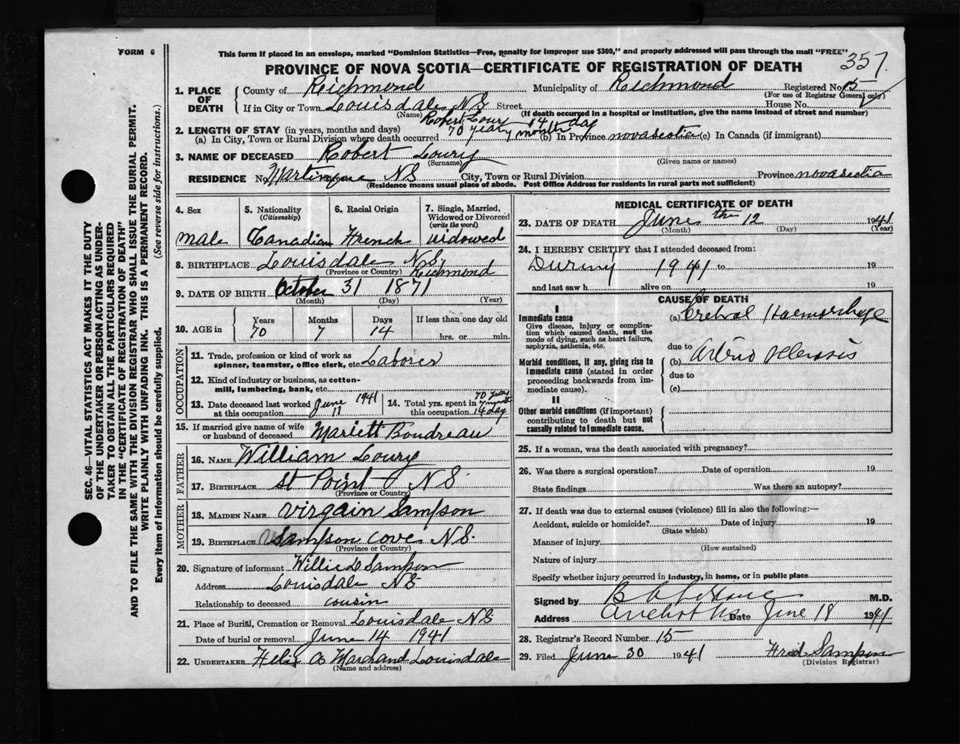 FORM 6
This form if placed in an envelope, marked "Dominion Statistics—Free, penalty for improper use $300," and properly addressed will pass through the mail "FREE"
357.
PROVINCE OF NOVA SCOTIA—CERTIFICATE OF REGISTRATION OF DEATH
1. PLACE OF DEATH County of Richmond Municipality of Richmond Registered No. 15
(For use of Registrar General only)
If in City or Town Louisdale N S Street House No.
(If death occurred in a hospital or institution, give the name instead of street and number)
(Name) Robert Loury
2. LENGTH OF STAY (in years, months and days)
(a) In City, Town or Rural Division where death occurred 70 years 7 month 14 day (b) In Province nova scotia (c) In Canada (if immigrant)
3. NAME OF DECEASED Robert Loury
(Surname) (Given name or names)
RESIDENCE No. N S City, Town or Rural Division Province nova scotia
(Residence means usual place of abode. Post Office Address for residents in rural parts not sufficient)
4. Sex 5. Nationality (Citizenship) 6. Racial Origin 7. Single, Married, Widowed or Divorced (write the word)
male Canadian French widowed
8. BIRTHPLACE Louisdale N S Richmond
(Province or Country)
9. DATE OF BIRTH October 31 1871
(Month) (Day) (Year)
10. AGE in Years Months Days If less than one day old
70 7 14 hrs. or min.
OCCUPATION
11. Trade, profession or kind of work as spinner, teamster, office clerk, etc. Laborer
12. Kind of industry or business, as cotton-mill, lumbering, bank, etc.
13. Date deceased last worked at this occupation June 11 1941 14. Total yrs. spent in this occupation 70 years 7 month 14 day
15. If married give name of wife or husband of deceased Mariett Boudreau
FATHER
16. Name William Loury
17. Birthplace St Point N S
(Province or Country)
MOTHER
18. Maiden Name Virgain Sampson
19. Birthplace Sampson Cove N S.
(Province or Country)
20. Signature of informant Willie D Sampson
Address Louisdale N S
Relationship to deceased cousin
21. Place of Burial, Cremation or Removal Louisdale N S
Date of burial or removal June 14 1941
22. UNDERTAKER Felix A Marchand Louisdale
(Name and address)
MEDICAL CERTIFICATE OF DEATH
23. DATE OF DEATH June the 12 1941
(Month) (Day) (Year)
24. I HEREBY CERTIFY that I attended deceased from:
During 1941 to 19
and last saw h alive on 19
CAUSE OF DEATH
I
Immediate cause (a) Crebral Haemorrhage
Give disease, injury or complication which caused death, not the mode of dying, such as heart failure, asphyxia, asthenia, etc.
due to
Morbid conditions, if any, giving rise to immediate cause (stated in order proceeding backwards from immediate cause).
(b) Arterio sclerosis
due to
(c)
II
Other morbid conditions (if important) contributing to death but not causally related to immediate cause.
25. If a woman, was the death associated with pregnancy?
26. Was there a surgical operation? Date of operation 19
State findings Was there an autopsy?
27. If death was due to external causes (violence) fill in also the following:—
Accident, suicide or homicide? Date of injury 19
(State which)
Manner of injury
(How sustained)
Nature of injury
Specify whether injury occurred in industry, in home, or in public place
Signed by M.D.
Address Arichat N.S. Date June 18 1941
28. Registrar's Record Number 15
29. Filed June 30 1941 Fred Sampson
(Division Registrar)
SEC. 46—VITAL STATISTICS ACT MAKES IT THE DUTY
OF THE UNDERTAKER OR PERSON ACTING AS UNDER-
TAKER TO OBTAIN ALL THE PARTICULARS REQUIRED
IN THE "CERTIFICATE OF REGISTRATION OF DEATH"
AND TO FILE THE SAME WITH THE DIVISION REGISTRAR WHO SHALL ISSUE THE BURIAL PERMIT.
WRITE PLAINLY WITH UNFADING INK. THIS IS A PERMANENT RECORD.
Every item of information should be carefully supplied. (See reverse side for instructions.)